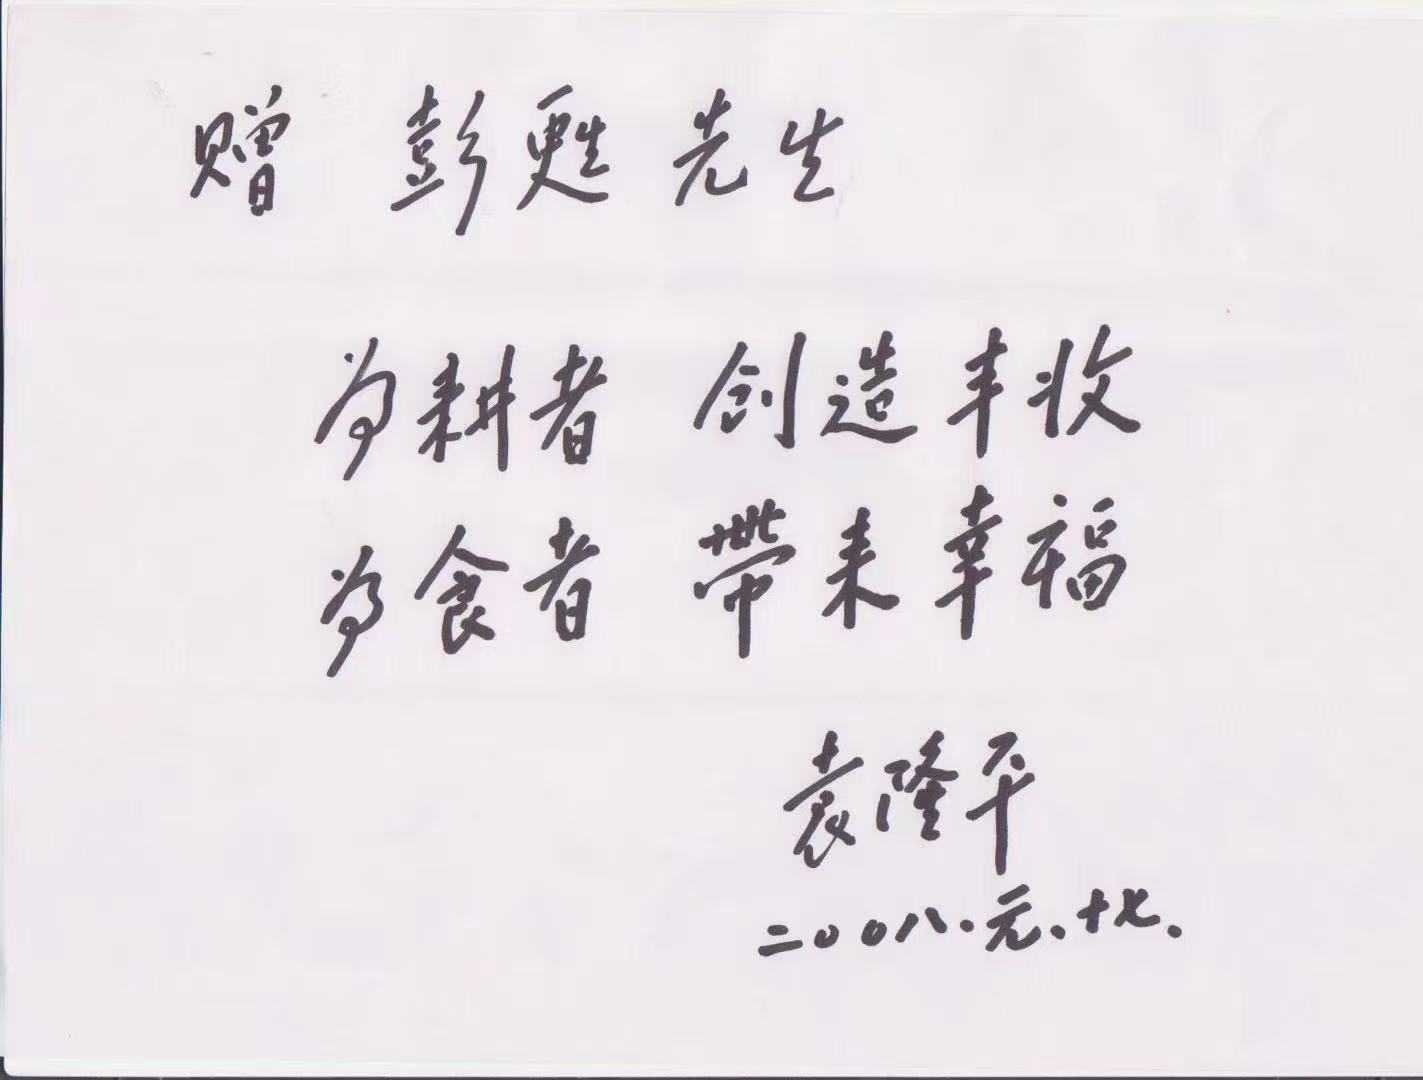 赠 彭甦先生
为耕者 创造丰收
为食者 带来幸福
袁隆平
二〇〇八.元.十七.